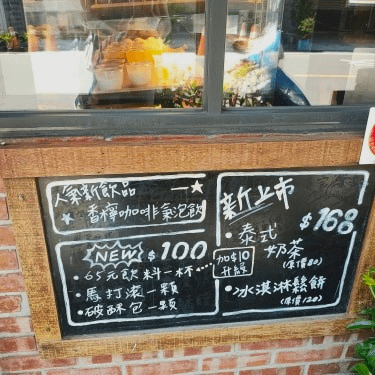 人氣新飲品
香檸咖啡氣泡飲
NEW $100
65元飲料一杯…
馬打滾一顆
破酥包一顆
新上市
$168
泰式
奶茶
(原價80)
加$10
升級
冰淇淋鬆餅
(原價120)